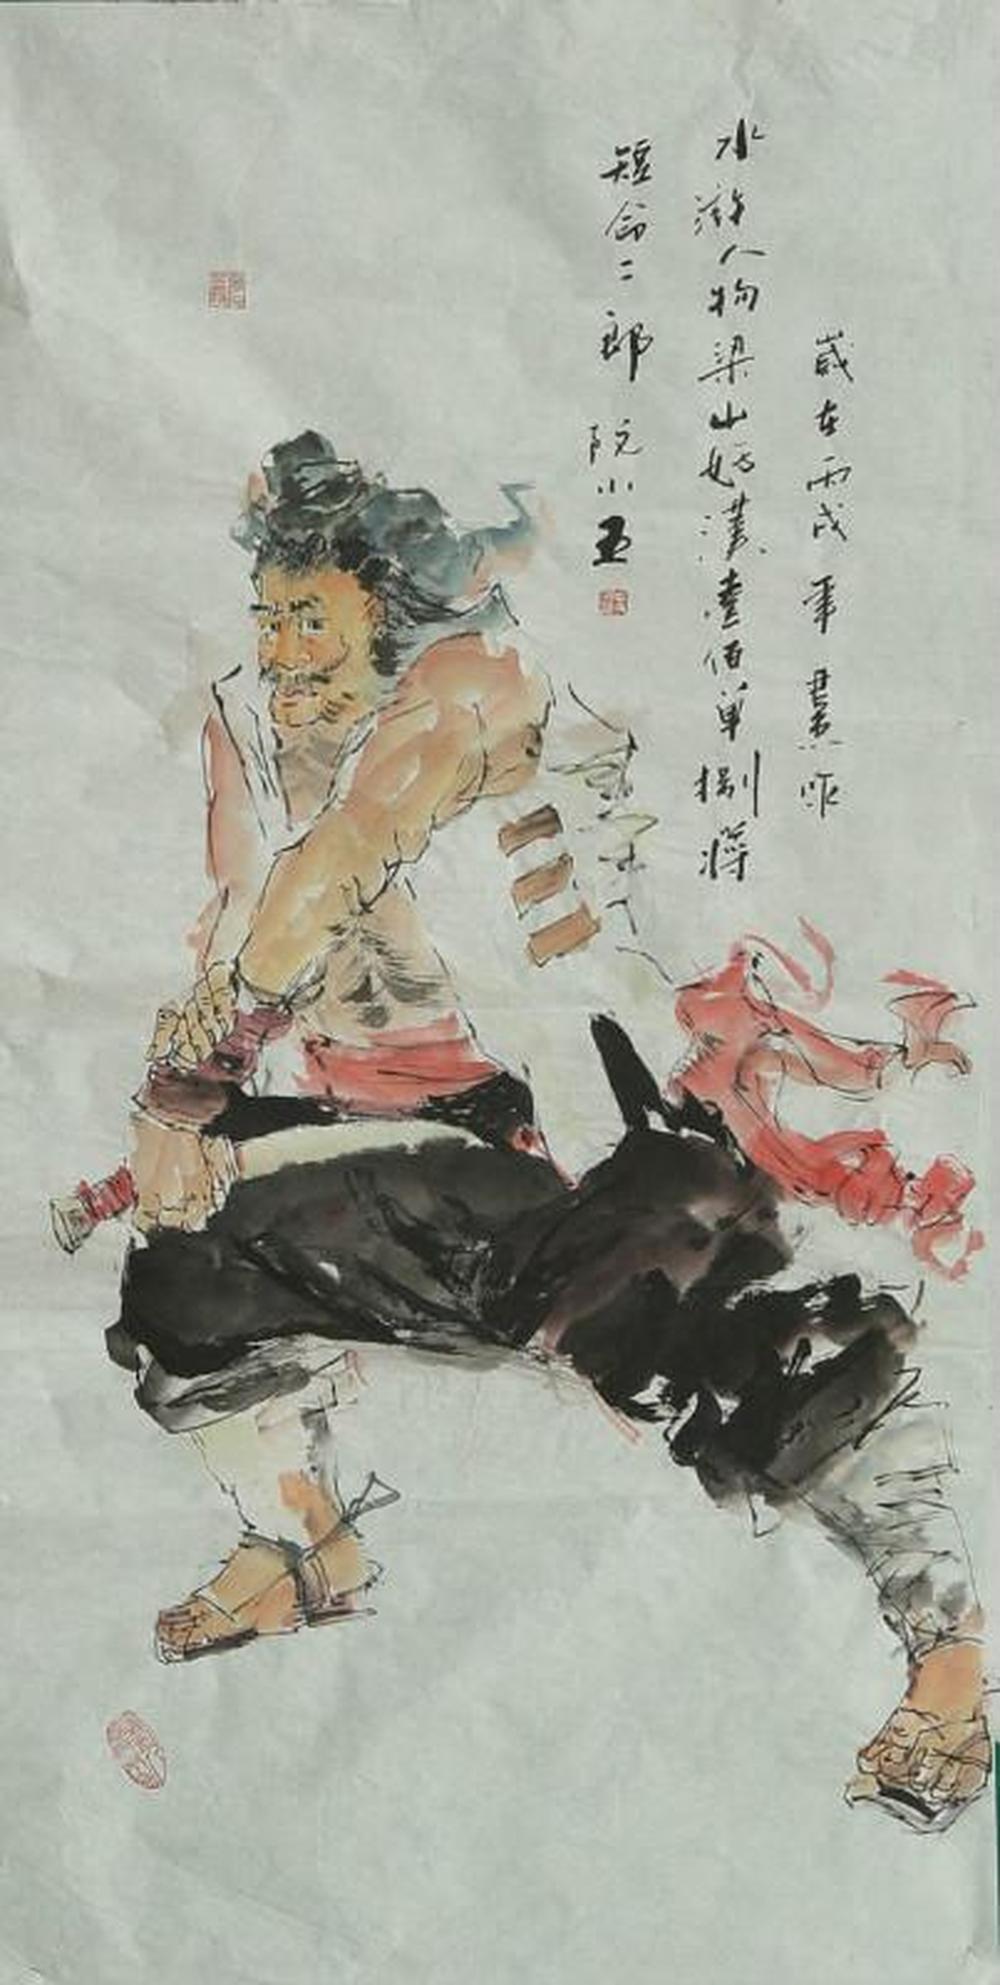 歲在丙戌年畫
水滸人物梁山好漢壹佰單捌將
短命二郎 阮小五